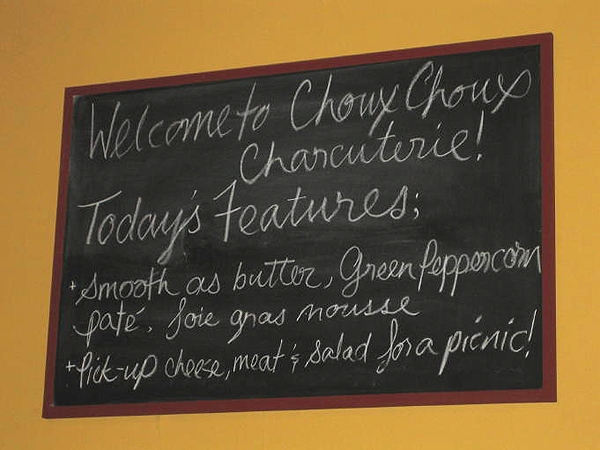 Welcome to Choux Choux
Charcuterie!
Today's Features;
+ smooth as butter, Green Peppercorn
paté, foie gras mousse
+ Pick-up cheese, meat & salad for a picnic!